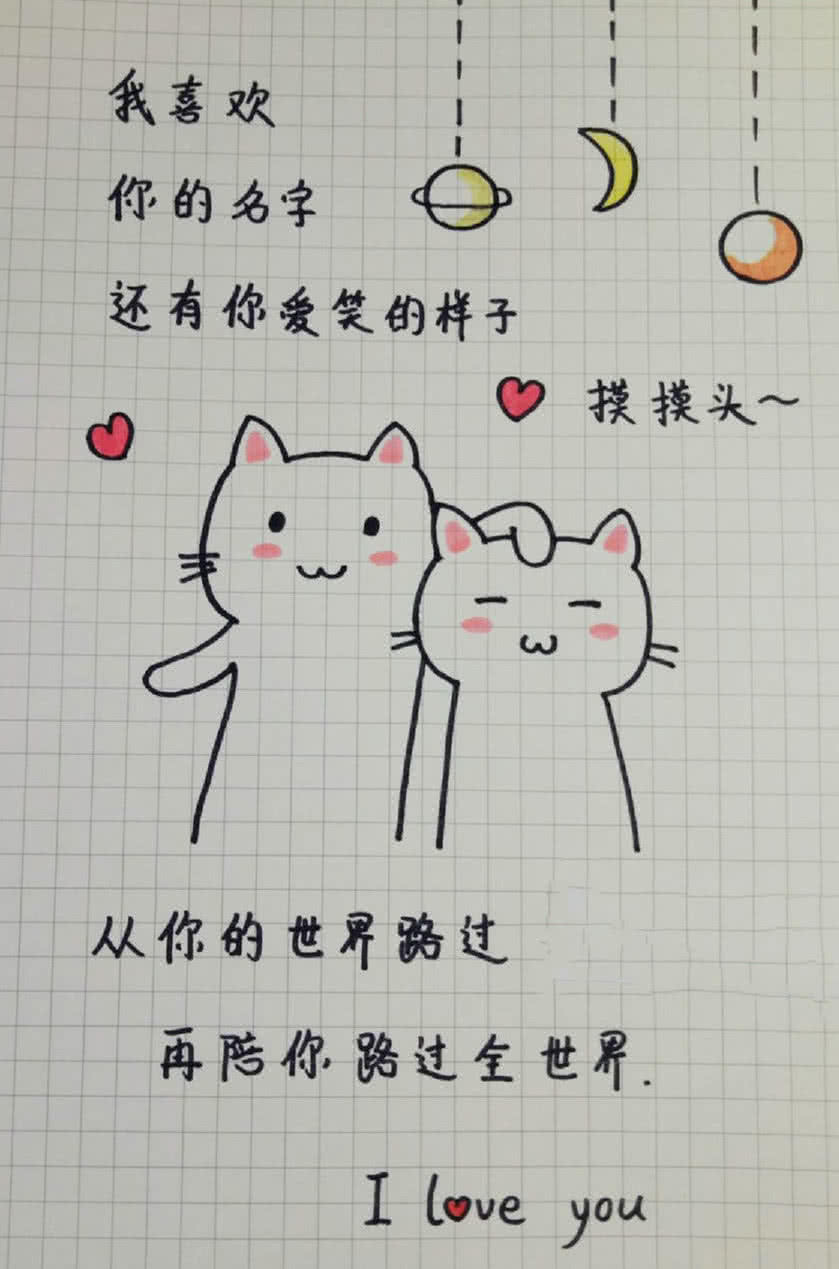 我喜欢
你的名字
还有你爱笑的样子
摸摸头~
从你的世界路过
再陪你路过全世界.
I love you